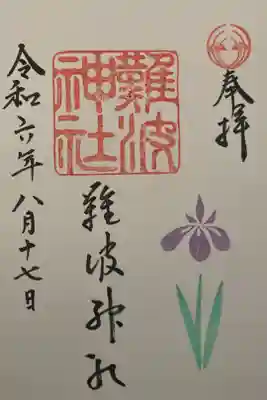 奉拝
難波神社
難波神社
令和六年八月十七日